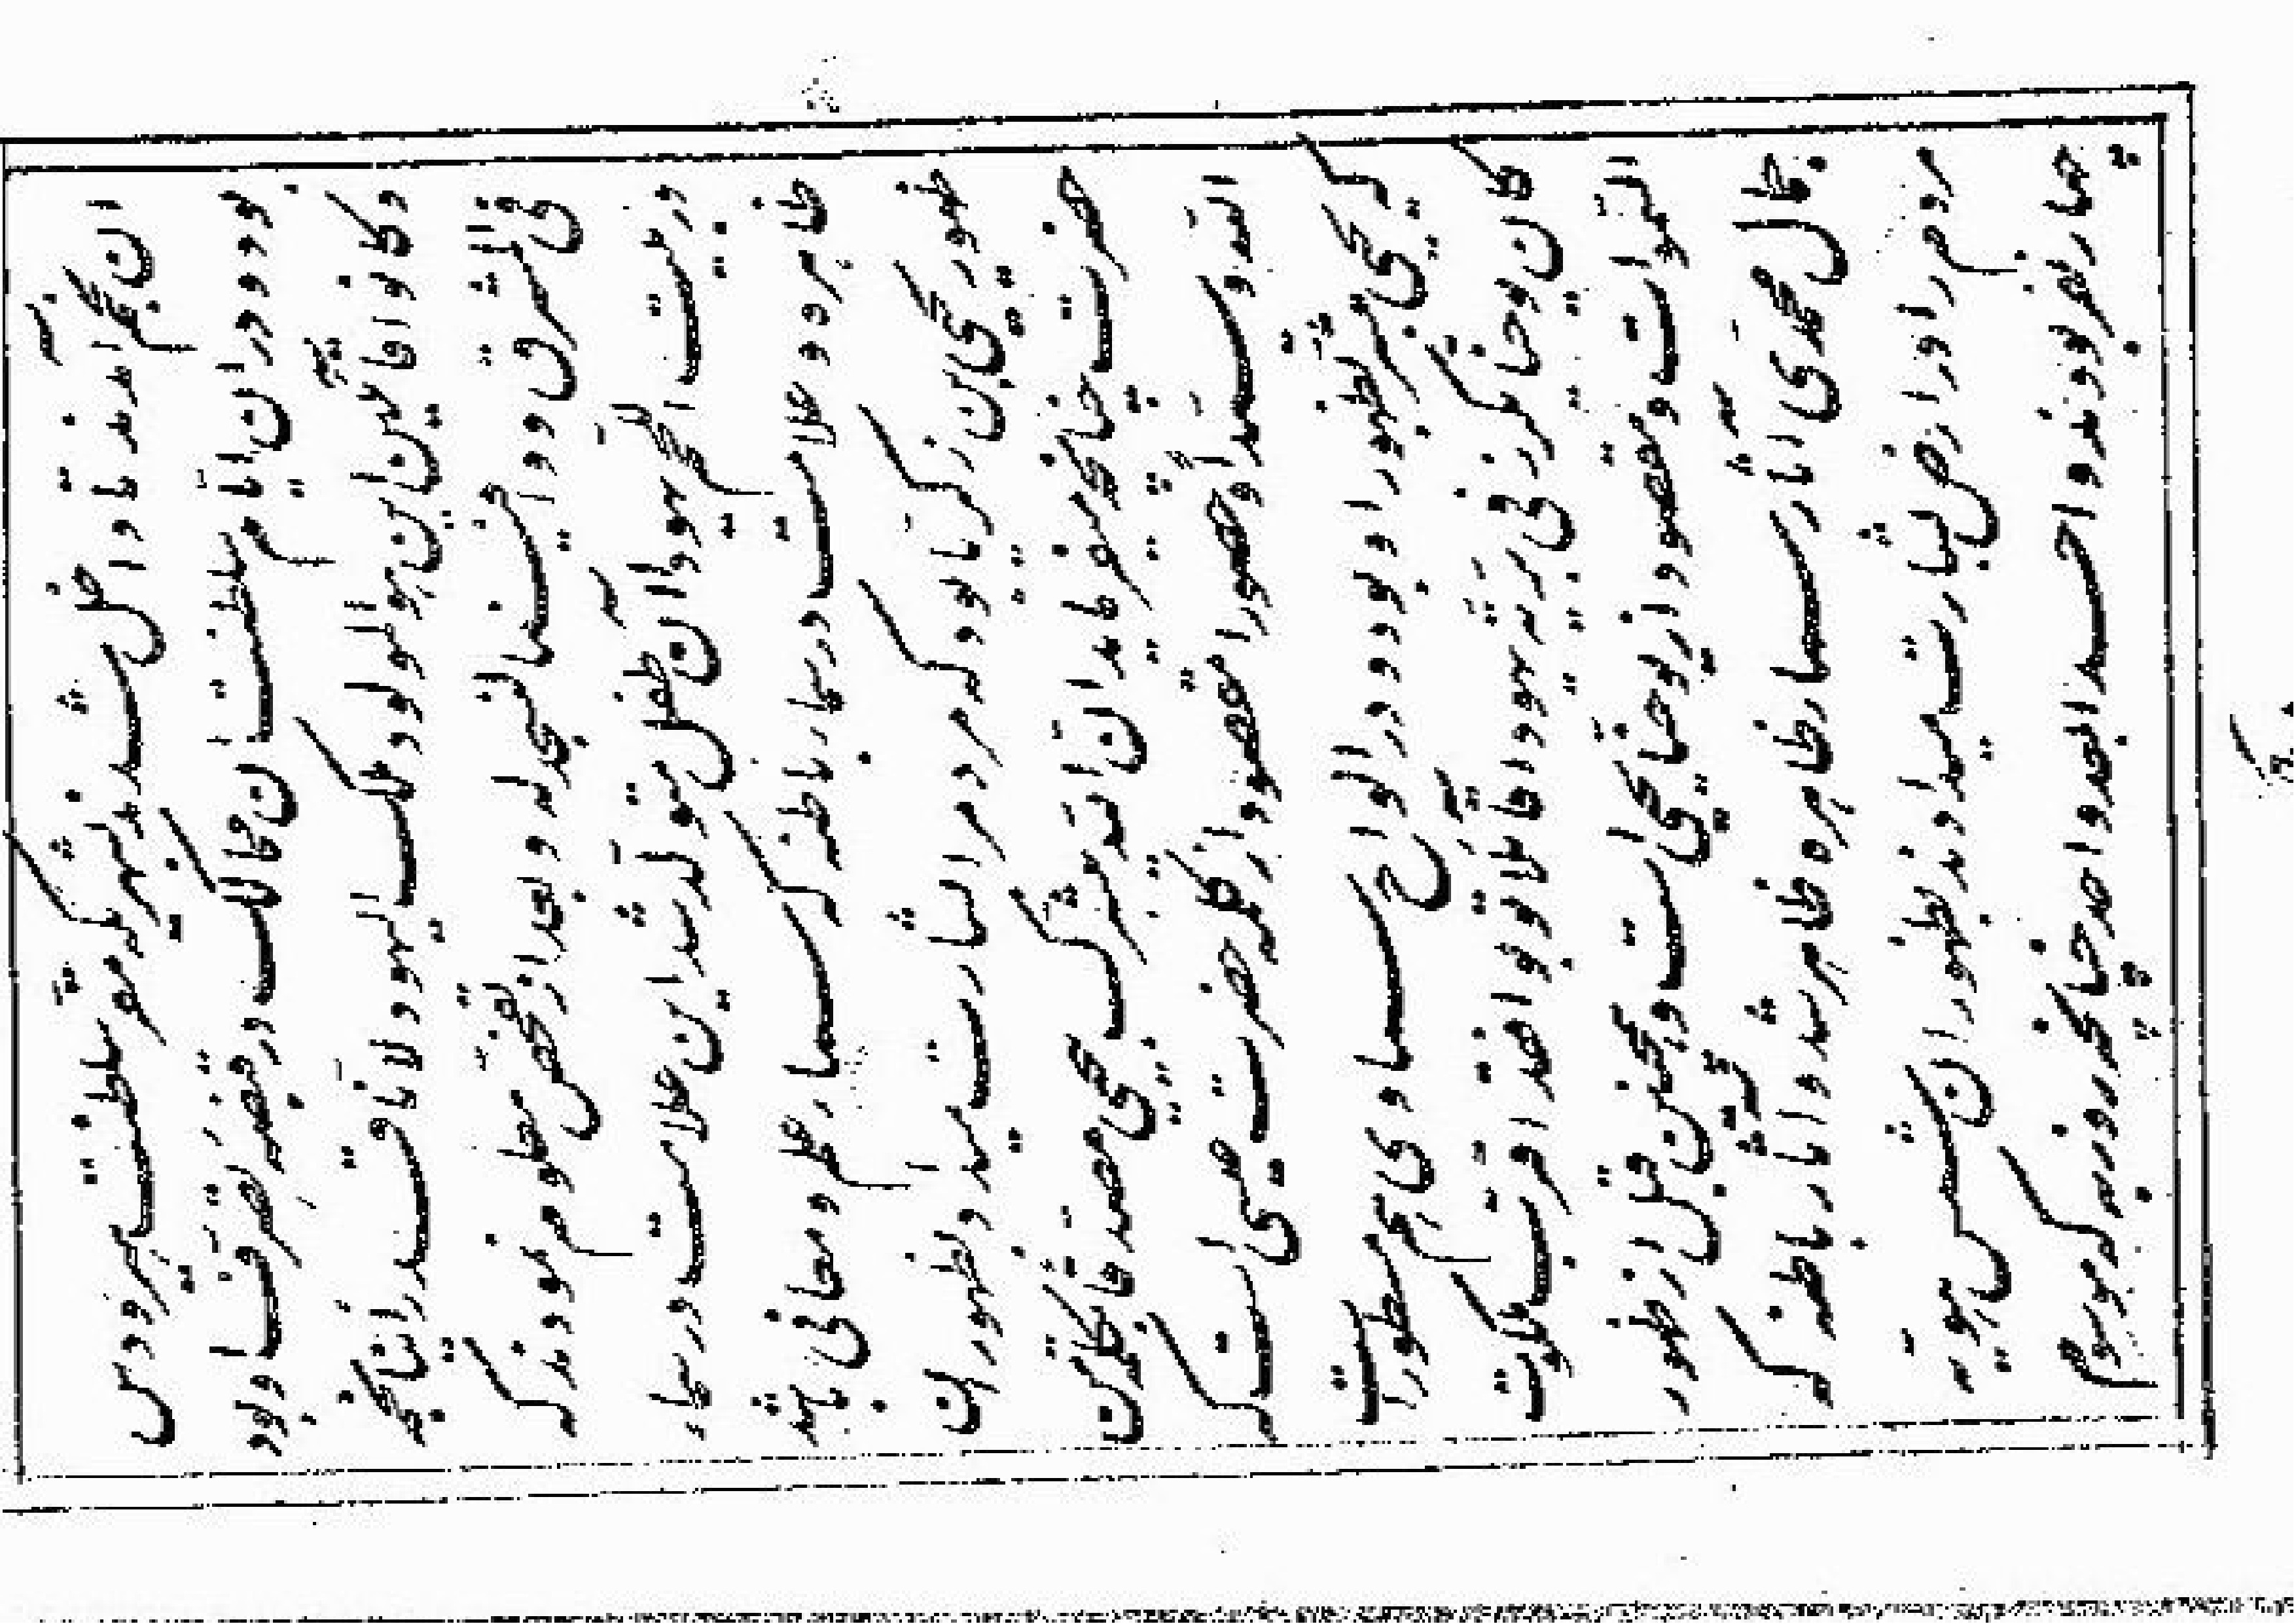 ان نجم امدند تا داخل شدند بشهری که مقر سلطنت هیرودس
بود و در ان ایام سلطنت ان ممالک در قبضه تصرف او بود
وکانوا قائلین این هو المولود ملک الیهود لانا قد راینا نجمه
فی المشرق ووافینا لنسجد له و بعد از تفحص معلوم نمودند که
در بیت اللحم یهودا ان طفل متولد شد این علامت در سماء
ظاهره و علامت در سماء باطنه که سماء علم و معانی باشد
ظهور یحیی بن زکریا بود که مردم را بشارت میداد بظهور ان
حضرت چنانچه میفرماید ان الله یبشرک بیحیی مصدقا بکلمة من
الله و سیدا و حصورا مقصود از کلمه حضرت عیسی است که
یحیی مبشر بظهور او بود و در الواح سماوی هم مسطور است
کان یوحنا یکرز فی بریة یهودا قائلا توبوا فقد اقتربت ملکوت
السموات و مقصود از یوحنا یحیی است و همچنین قبل از ظهور
جمال محمدی اثار سماء ظاهره ظاهر شد و اثار باطنه که
مردم را در ارض بشارت میدادند بظهور ان شمس هویه
چهار نفر بودند واحدا بعد واحد چنانچه روزبه که موسوم